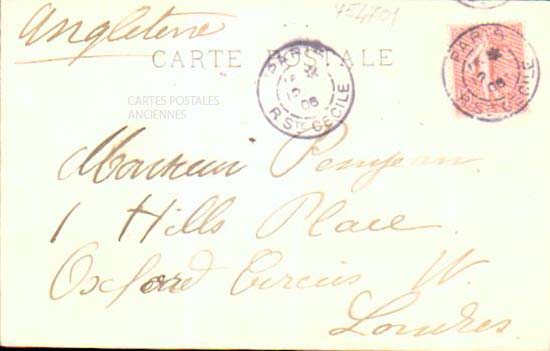 Angleterre
CARTE POSTALE
PARIS
9
06
R. STE CÉCILE
PARIS
9
06
R. STE CÉCILE
CARTES POSTALES
ANCIENNES
Monsieur
1 Hills Place
Oxford Circus W.
Londres